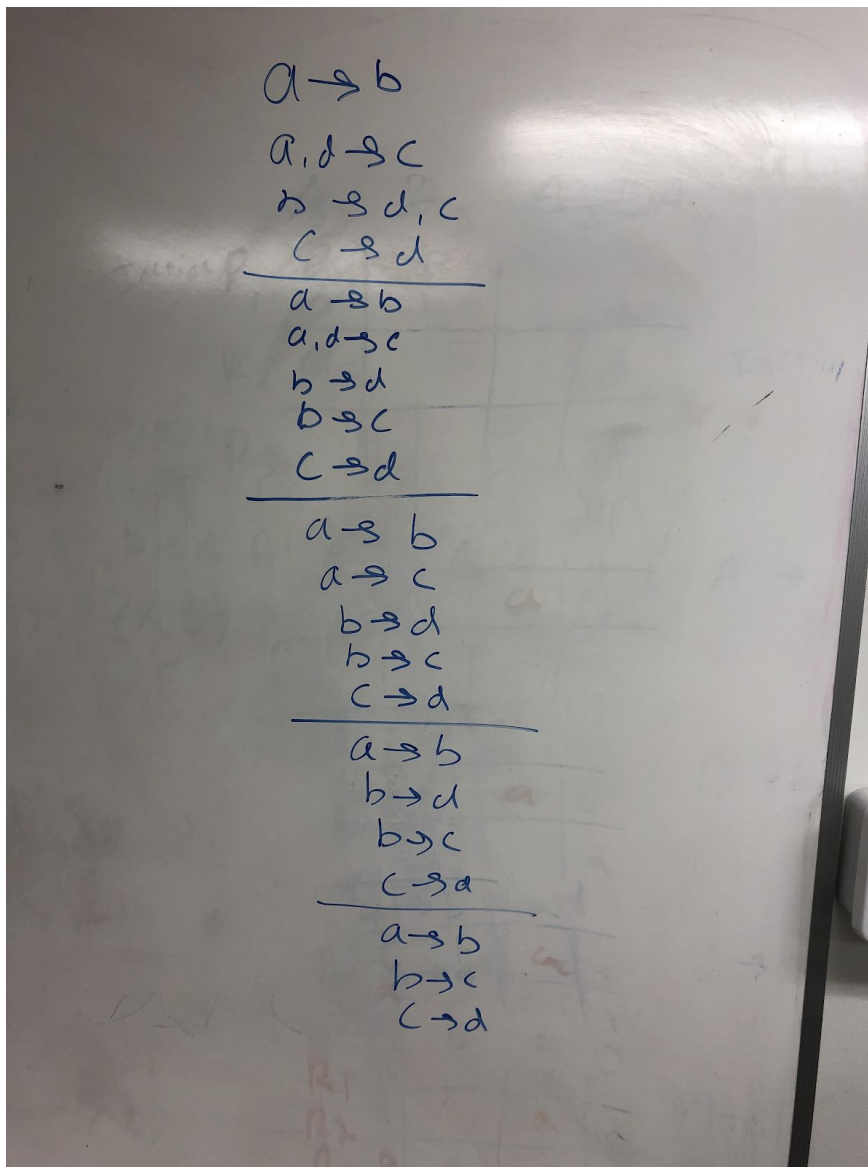 a → b
a, d → c
b → d, c
c → d
a → b
a, d → c
b → d
b → c
c → d
a → b
a → c
b → d
b → c
c → d
a → b
b → d
b → c
c → d
a → b
b → c
c → d
R1
R2